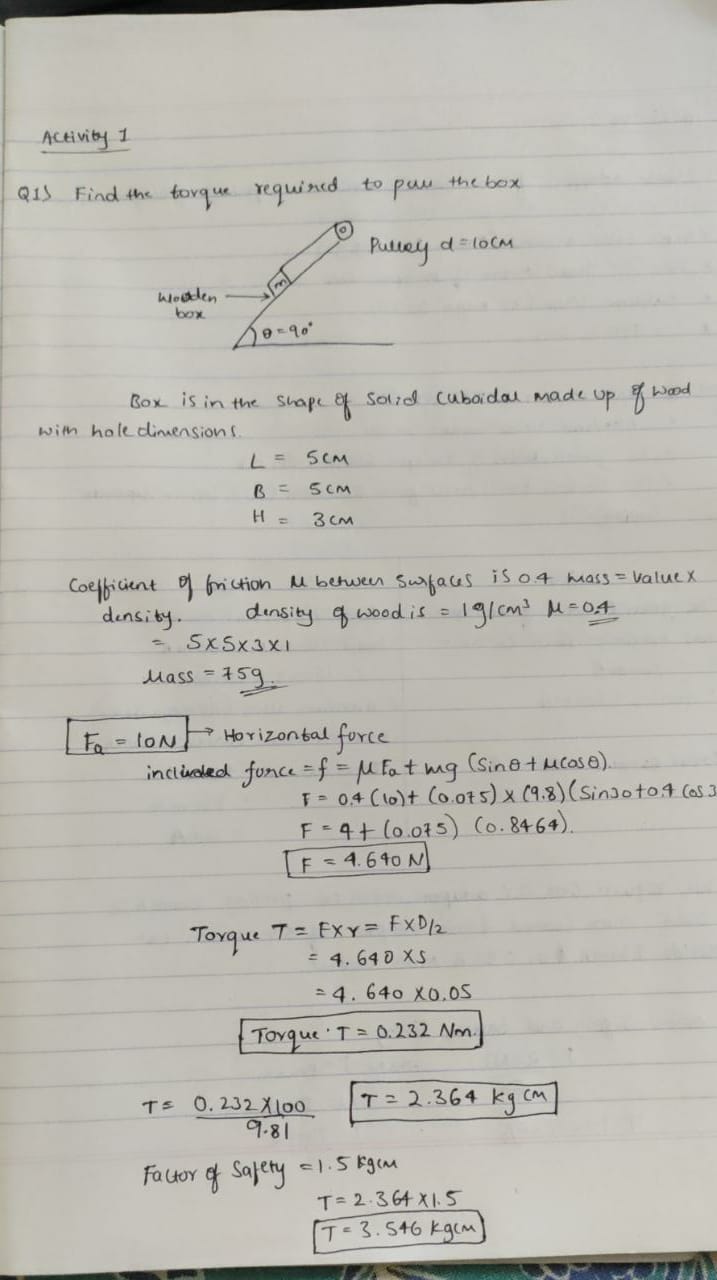 Activity 1
Q1) Find the torque required to pull the box
Pulley d = 10cm
m
Wooden
box
θ = 90°
Box is in the shape of solid cuboidal made up of wood
with hole dimensions.
L = 5cm
B = 5cm
H = 3cm
Coefficient of friction μ between surfaces is 0.4 mass = value x
density. density of wood is = 1g/cm³ μ = 0.4
= 5x5x3x1
Mass = 75g.
Fa = 10N → Horizontal force
included force = f = μFa + mg (sinθ + μcosθ).
F = 0.4(10) + (0.075) x (9.8)(sin30 + 0.4 cos 3
F = 4 + (0.075) (0.8464).
F = 4.640 N
Torque T = Fxr = FxD/2
= 4.640 x5
= 4.640 x0.05
Torque T = 0.232 Nm.
T = 0.232 x100 T = 2.364 kg cm
9.81
Factor of Safety = 1.5 kgcm
T = 2.364 x1.5
T = 3.546 kgcm